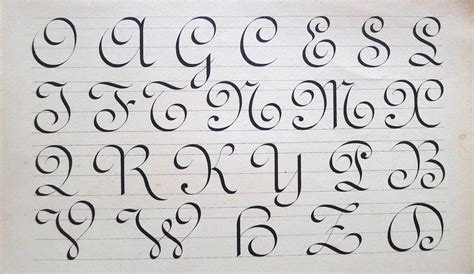 O A G C E S L
I F T N M X
Q R K Y P B
V W H Z D